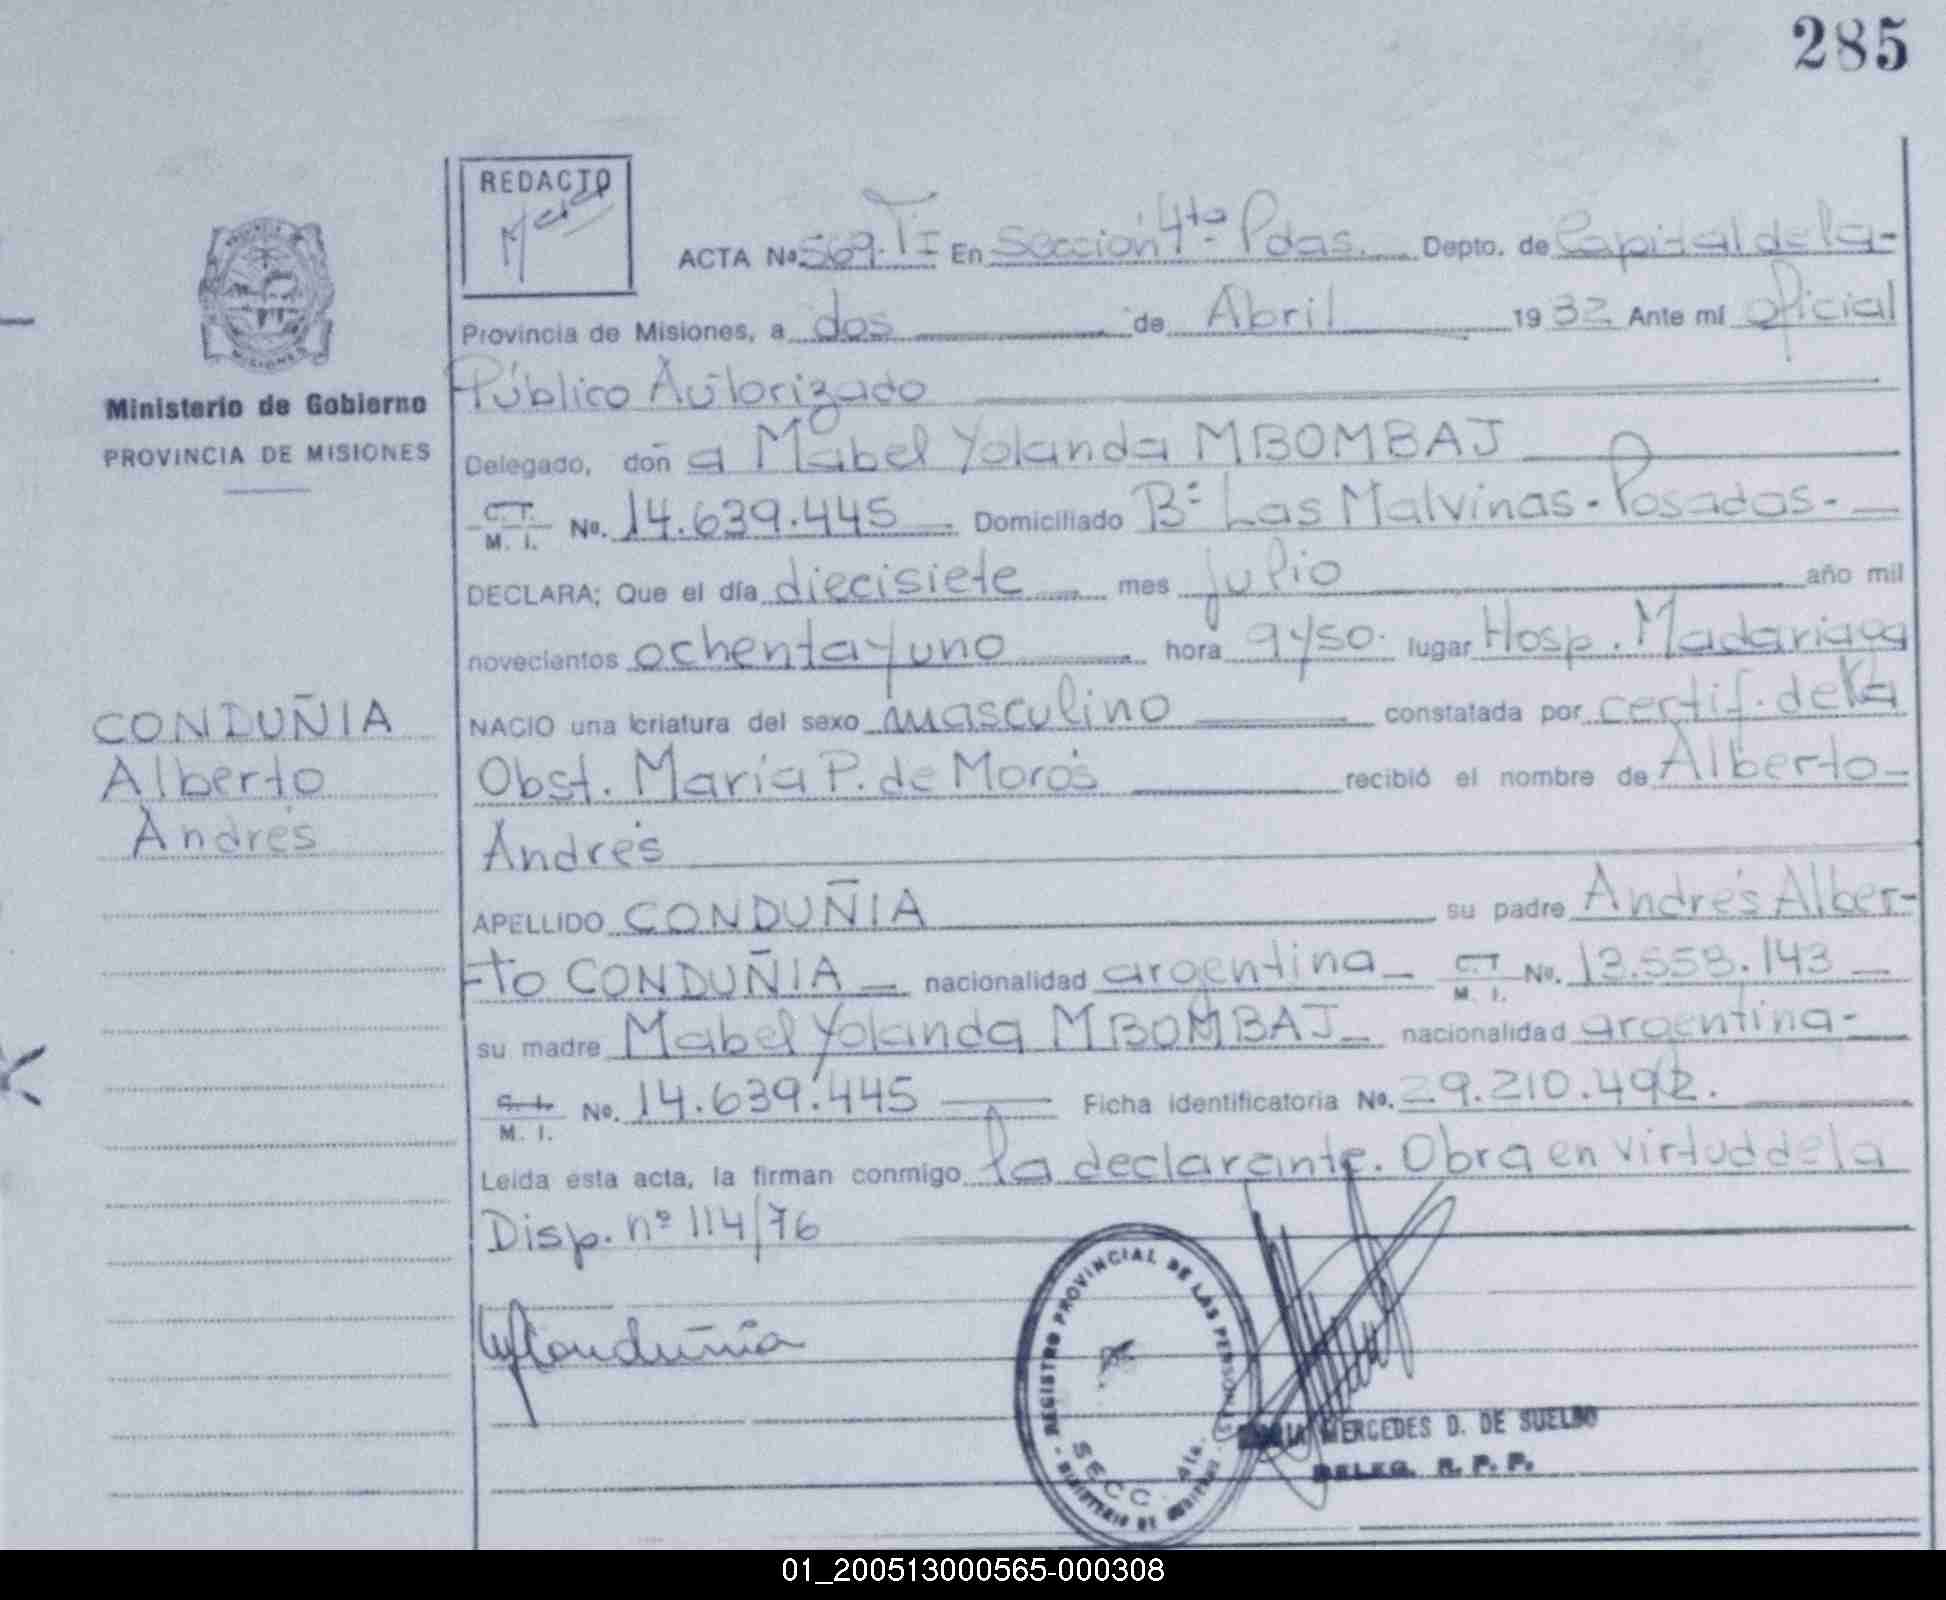 285
REDACTO
ACTA No. 569. TI En Sección 4ta Pdas. Depto. de Capital de la-
Provincia de Misiones, a dos de Abril 1982 Ante mí Oficial
Público Autorizado
Ministerio de Gobierno
PROVINCIA DE MISIONES
Delegado, doña Mabel Yolanda MBOMBAJ
C.I. M. I. No. 14.639.445 Domiciliado Bº Las Malvinas - Posadas.-
DECLARA; Que el día diecisiete mes julio año mil
novecientos ochenta y uno hora 9 y 50. lugar Hosp. Madariaga
NACIO una criatura del sexo masculino constatada por certif. de la
Obst. María P. de Morós recibió el nombre de Alberto-
Andrés
CONDUÑIA
Alberto
Andrés
APELLIDO CONDUÑIA su padre Andrés Alber-
-to CONDUÑIA nacionalidad argentina C.I. M. I. No. 13.558.143
su madre Mabel Yolanda MBOMBAJ nacionalidad argentina-
C.I. M. I. No. 14.639.445 Ficha identificatoria No. 29.210.492.
Leída esta acta, la firman conmigo la declarante. Obra en virtud de la
Disp. nº 114/76
REGISTRO PROVINCIAL DE LAS PERSONAS
SECC. 4ta.
MINISTERIO DE GOBIERNO
MARIA MERCEDES D. DE SUELDO
DELEG. R. P. P.
01_200513000565-000308